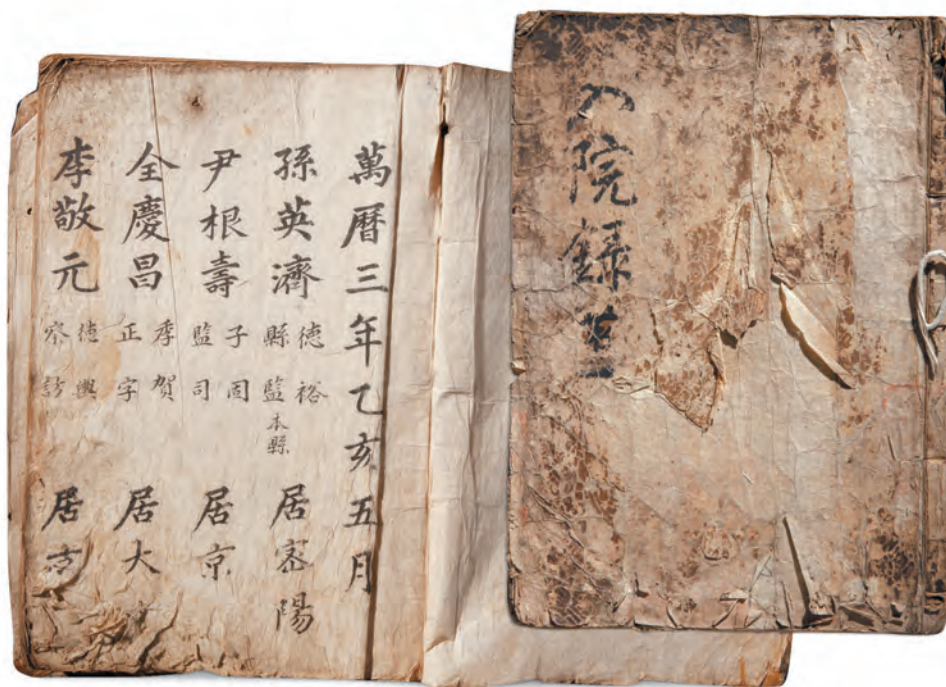 入院錄
萬曆三年乙亥五月
孫英濟 德裕 縣監 本縣 居密陽
尹根壽 子固 監司 居京
全慶昌 季賀 正字 居大
李敬元 德 察訪 居京